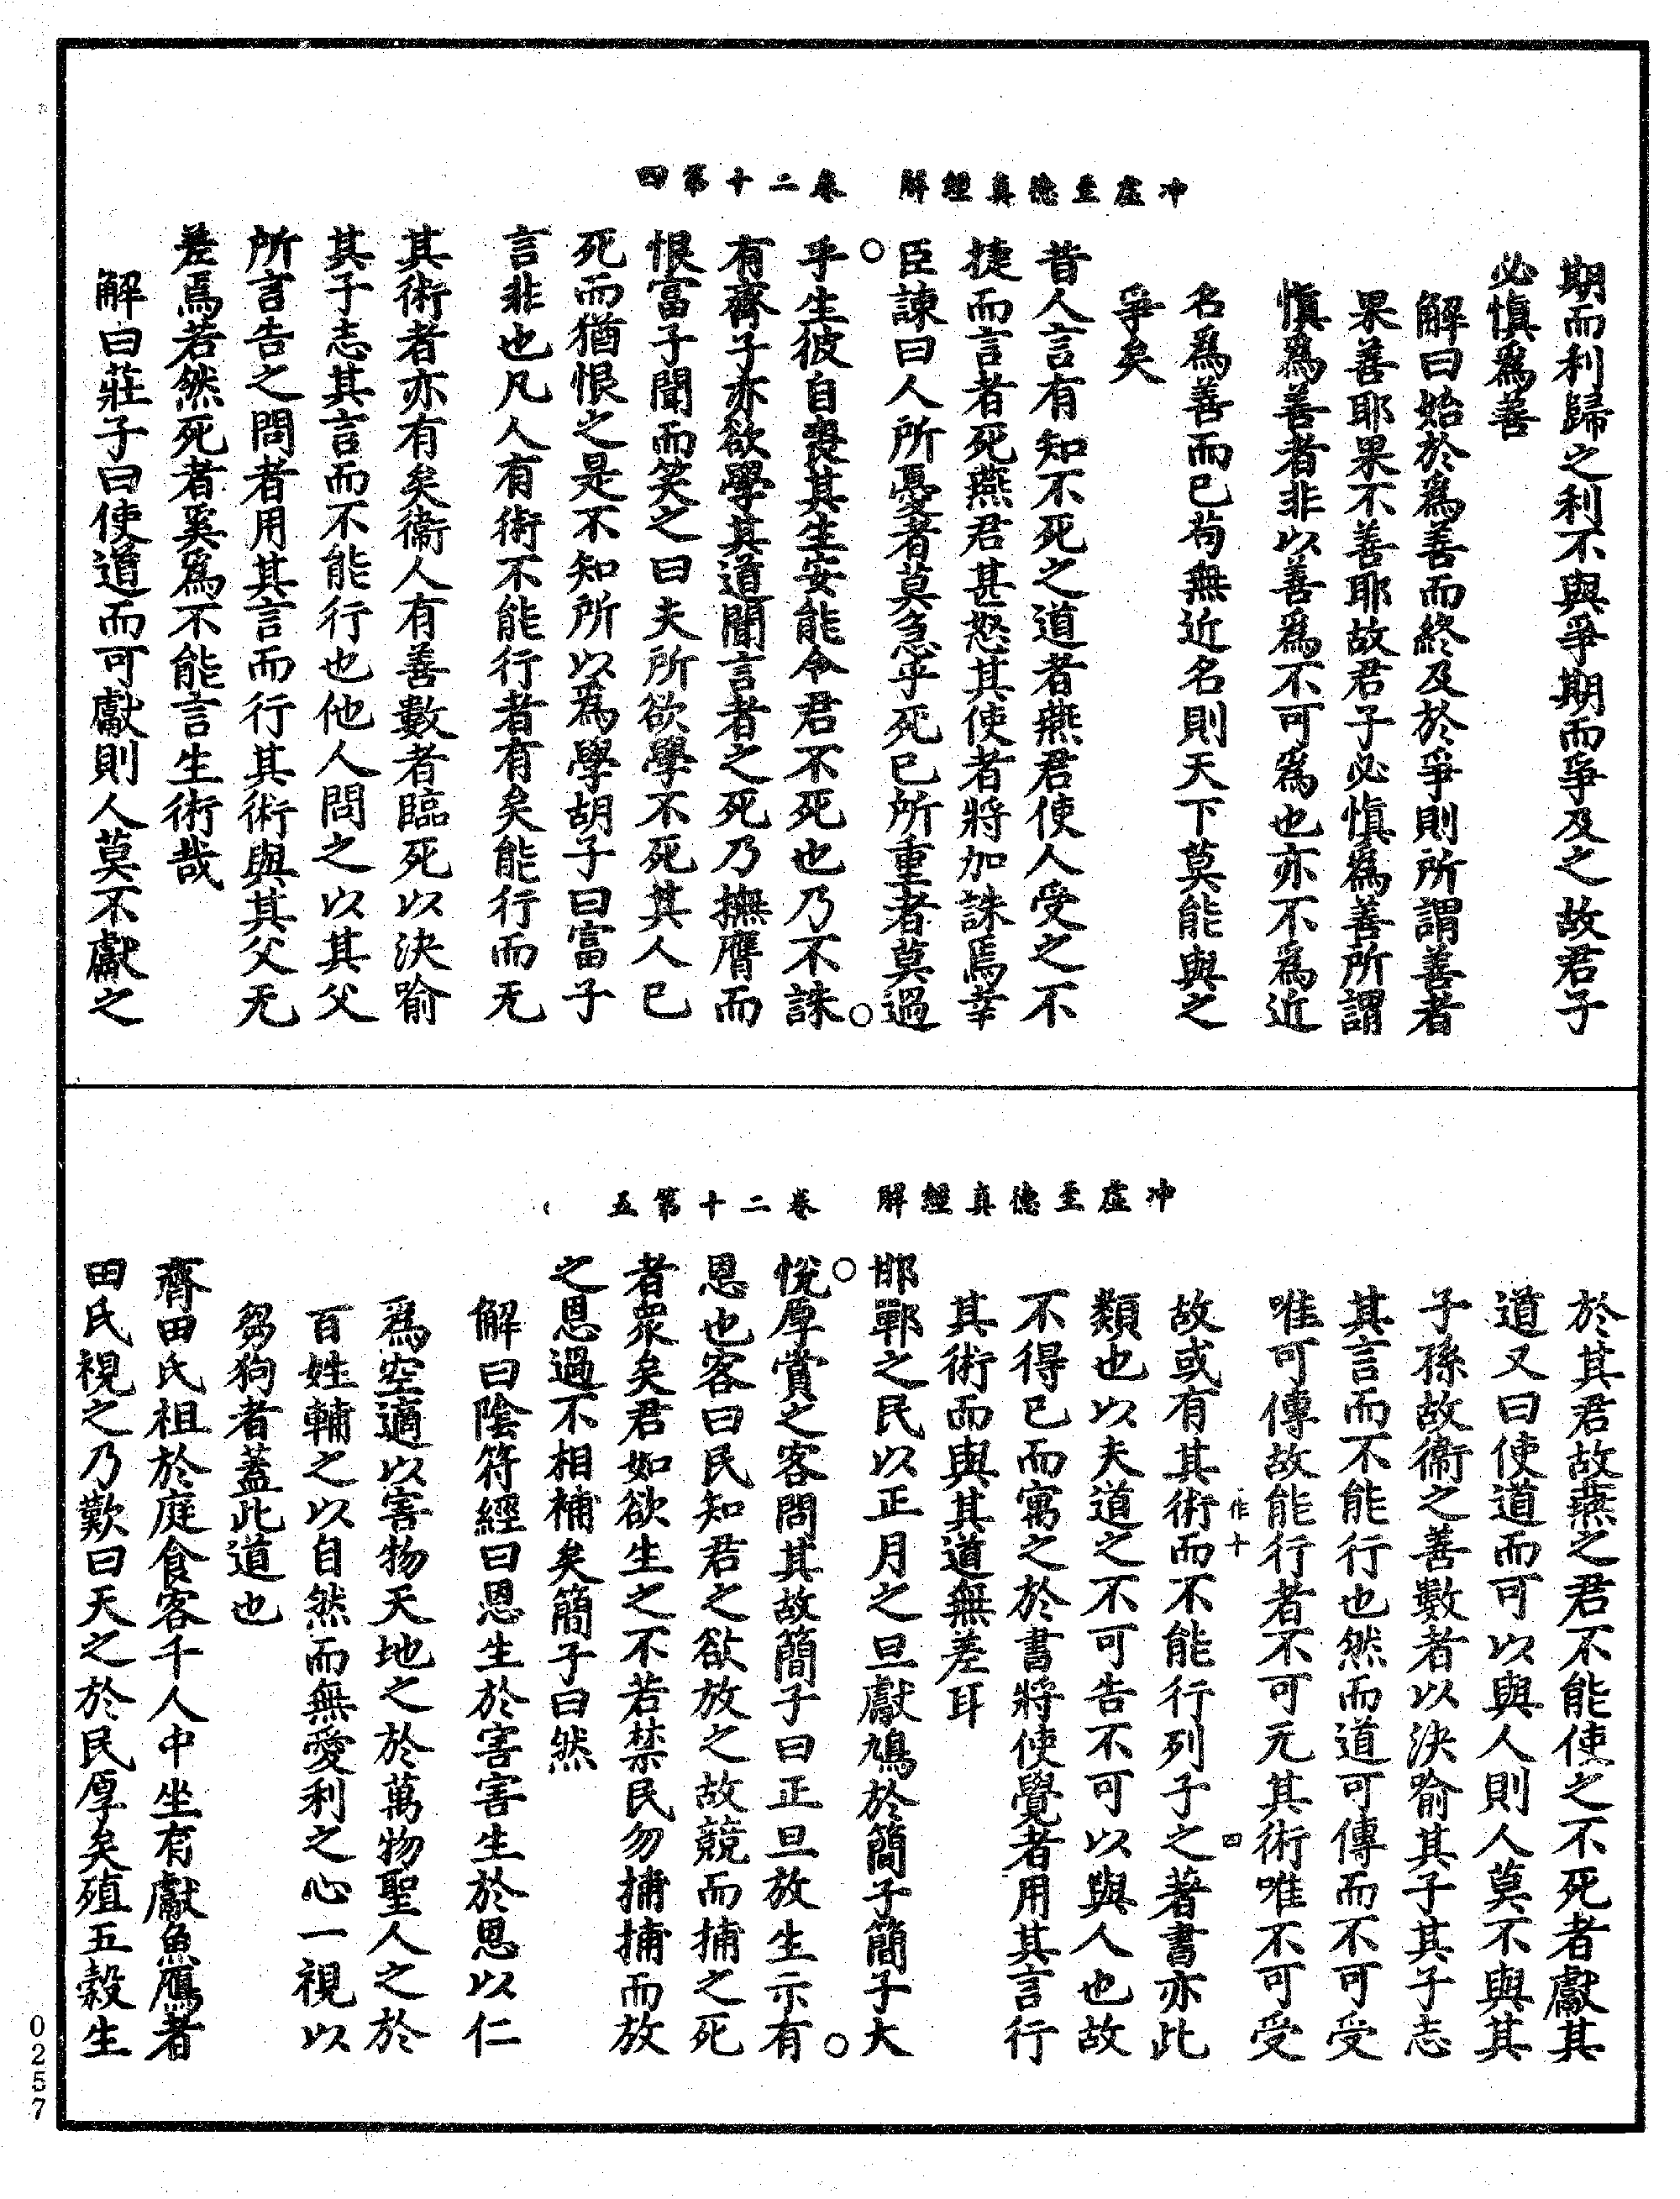 冲虛至德真經解　卷二十第四
期而利歸之利不與爭期而爭及之故君子
必慎為善
解曰始於為善而終及於爭則所謂善者
果善耶果不善耶故君子必慎為善所謂
慎為善者非以善為不可為也亦不為近
名為善而已苟無近名則天下莫能與之
爭矣
昔人言有知不死之道者燕君使人受之不
捷而言者死燕君甚怒其使者將加誅焉幸
臣諫曰人所憂者莫急乎死已所重者莫過
乎生彼自喪其生安能令君不死也乃不誅
有齊子亦欲學其道聞言者之死乃撫膺而
恨富子聞而笑之曰夫所欲學不死其人已
死而猶恨之是不知所以為學胡子曰富子
言非也凡人有術不能行者有矣能行而无
其術者亦有矣衛人有善數者臨死以決喻
其子志其言而不能行也他人問之以其父
所言告之問者用其言而行其術與其父无
差焉若然死者奚為不能言生術哉
解曰莊子曰使道而可獻則人莫不獻之
冲虛至德真經解　卷二十第五
於其君故燕之君不能使之不死者獻其
道又曰使道而可以與人則人莫不與其
子孫故衛之善數者以決喻其子其子志
其言而不能行也然而道可傳而不可受
唯可傳故能行者不可元其術唯不可受
作十　四
故或有其術而不能行列子之著書亦此
類也以夫道之不可告不可以與人也故
不得已而寓之於書將使覺者用其言行
其術而與其道無差耳
邯鄲之民以正月之旦獻鳩於簡子簡子大
悅厚賞之客問其故簡子曰正旦放生示有
恩也客曰民知君之欲放之故競而捕之死
者眾矣君如欲生之不若禁民勿捕捕而放
之恩過不相補矣簡子曰然
解曰陰符經曰恩生於害害生於恩以仁
為空適以害物天地之於萬物聖人之於
百姓輔之以自然而無愛利之心一視以
芻狗者蓋此道也
齊田氏祖於庭食客千人中坐有獻魚鴈者
田氏視之乃歎曰天之於民厚矣殖五穀生
0257